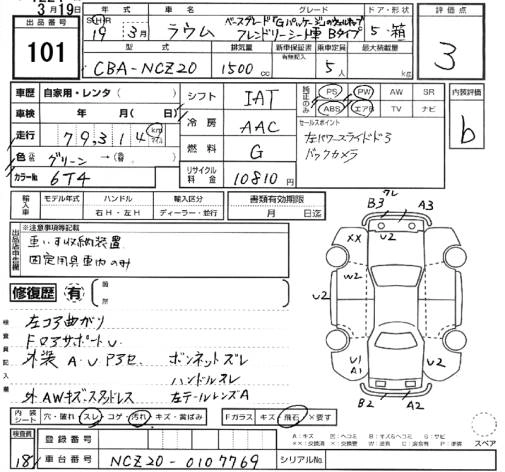 3月19日
年式 車名 グレード ドア・形状 評価点
出品番号 101
S・H 19年 3月 ラウム ベースグレード"Gパッケージ"のウェルキャブ フレンドリーシート車 Bタイプ 5・箱
3
型式 排気量 新車保証書 乗車定員 最大積載量
有無記入
CBA-NCZ20 1500cc 5人 kg
車歴 自家用・レンタ( ) シフト IAT 純正のみ PS PW AW SR 内装評価
車検 年 月( 日) 冷房 AAC ABS エアB TV ナビ b
走行 79,314 km マイル セールスポイント
色 グリーン → ( ) 燃料 G 左パワースライドドア
バックカメラ
カラーNo. 6T4 リサイクル料金 10810円
輸入車 モデル年式 ハンドル 輸入区分 書類有効期限
年 右H・左H ディーラー・並行 月 日迄
※注意事項等記載
車いす収納装置
固定用具車内のみ
修復歴 有 箇所
検査員記入
左コア曲がり
FロアサポートU
外装A・U P3セ ボンネットズレ
ハンドルスレ
外AWキズスタッドレス 左テールレンズA
クレ
B3 A3
XX U2
W2
U2 U2
U1
A1
B2 A2
内装シート 穴・破れ・スレ・コゲ・汚れ・キズ・黄ばみ Fガラス キズ・飛石・×要す
スペア
検査費 登録番号
181 車台番号 NCZ20-0107769 シリアルNo.